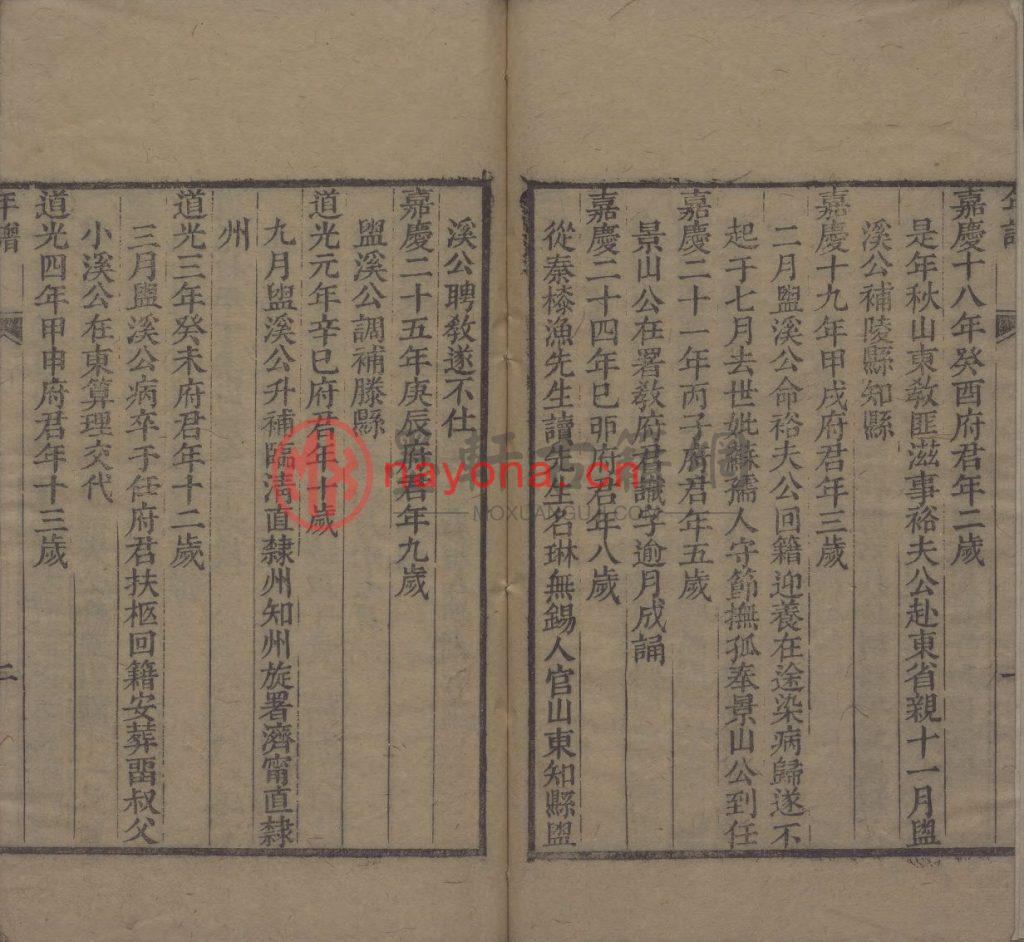 年譜
嘉慶十八年癸酉府君年二歲
是年秋山東敎匪滋事裕夫公赴東省親十一月盥
溪公補陵縣知縣
嘉慶十九年甲戌府君年三歲
二月盥溪公命裕夫公回籍迎養在途染病歸遂不
起于七月去世妣蘇孺人守節撫孤奉景山公到任
嘉慶二十一年丙子府君年五歲
景山公在署敎府君識字逾月成誦
嘉慶二十四年己卯府君年八歲
從秦㯃漁先生讀先生名琳無錫人官山東知縣盥
一
溪公聘敎遂不仕
嘉慶二十五年庚辰府君年九歲
盥溪公調補滕縣
道光元年辛巳府君年十歲
九月盥溪公升補臨淸直隸州知州旋署濟甯直隸
州
道光三年癸未府君年十二歲
三月盥溪公病卒于任府君扶柩回籍安葬畱叔父
小溪公在東算理交代
道光四年甲申府君年十三歲
年譜
二
nayona.cn